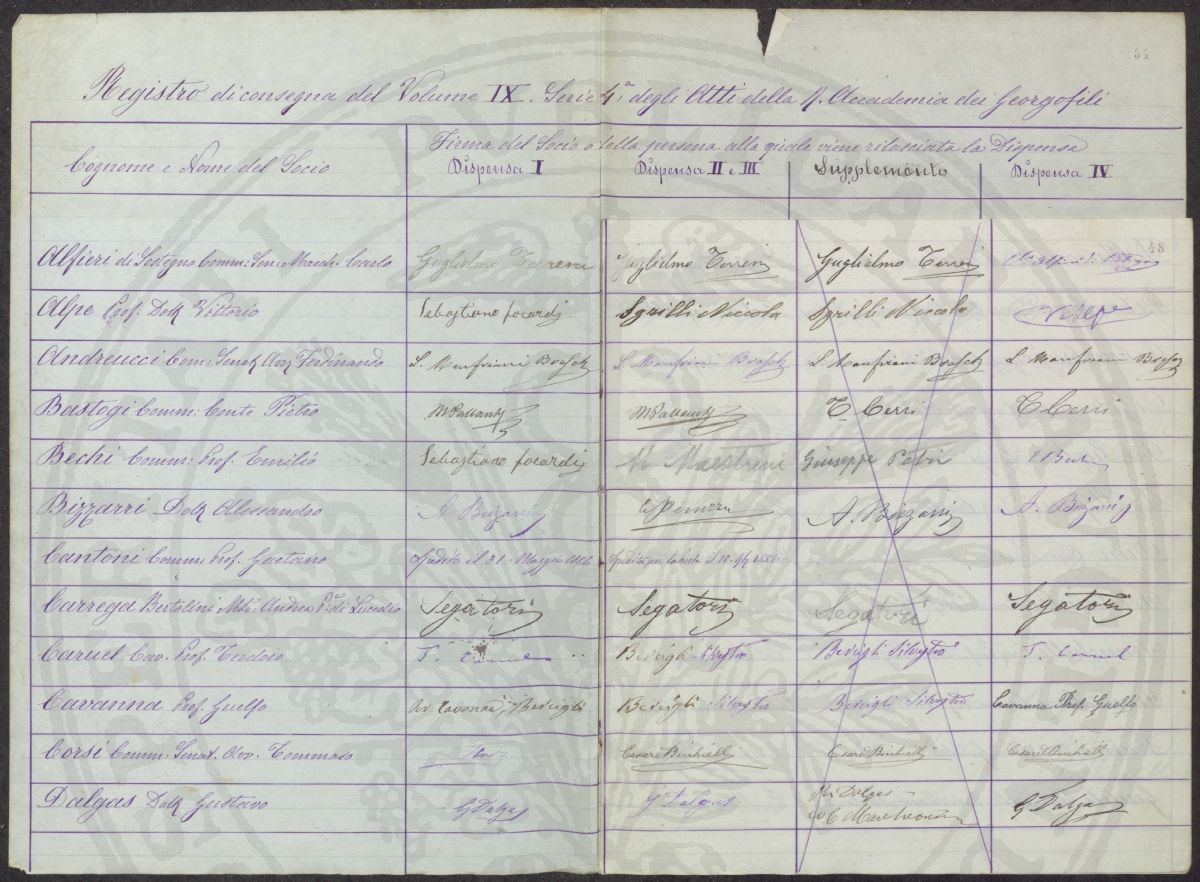 54
Registro di consegna del Volume IX. Serie 4.a degli Atti della R. Accademia dei Georgofili
Cognome e Nome del Socio
Firma del Socio o della persona alla quale viene rilasciata la Dispensa
Dispensa I Dispensa II e III Supplemento Dispensa IV
58
Alfieri di Sostegno Comm: Sen: March: Carlo Guglielmo Terreni Guglielmo Terreni Guglielmo Terreni Alfieri di
Alpe Prof. Dott Vittorio Sebastiano focardi Sgrilli Niccola Sgrilli Niccola V. Alpe
Andreucci Com: Senat Avv Ferdinando L. Manfriani L. Manfriani L. Manfriani L. Manfriani
Bastogi Comm: Conte Pietro T Cerri T Cerri
Bechi Comm: Prof. Emilio Sebastiano focardi Maestrini Giuseppe E Bechi
Bizzarri Dott Alessandro A Bizzarri A. Bizzarri A. Bizzarri
Cantoni Comm: Prof. Gaetano Spedita il 21. Maggio 1886 Spedita per la posta il 10.
Carrega Bertolini March: Andrea P.e di Lucedio Segatori Segatori Segatori Segatori
Caruel Cav. Prof. Teodoro T. Caruel Bercigli Silvestro Bercigli Silvestro T. Caruel
Cavanna Prof. Guelfo Cavanna Bercigli Bercigli Silvestro Bercigli Silvestro Cavanna Prof. Guelfo
Corsi Comm: Senat. Avv. Tommaso Cesare Cesare Cesare
Dalgas Dott Gustavo G Dalgas G Dalgas Dalgas G Dalgas